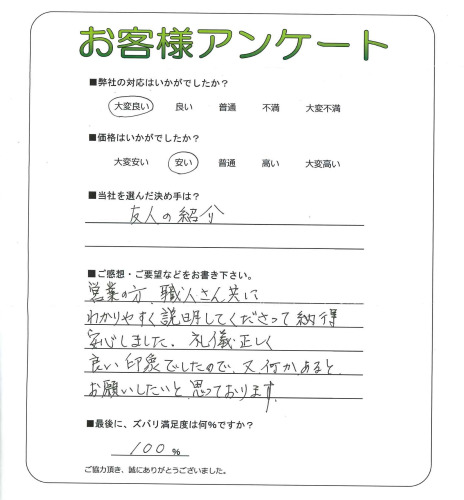 お客様アンケート
■弊社の対応はいかがでしたか?
大変良い 良い 普通 不満 大変不満
■価格はいかがでしたか?
大変安い 安い 普通 高い 大変高い
■当社を選んだ決め手は?
友人の紹介
■ご感想・ご要望などをお書き下さい。
営業の方、職人さん共に
わかりやすく説明してくださって納得
安心しました。礼儀正しく
良い印象でしたので、又何かあると
お願いしたいと思っております。
■最後に、ズバリ満足度は何%ですか?
100%
ご協力頂き、誠にありがとうございました。